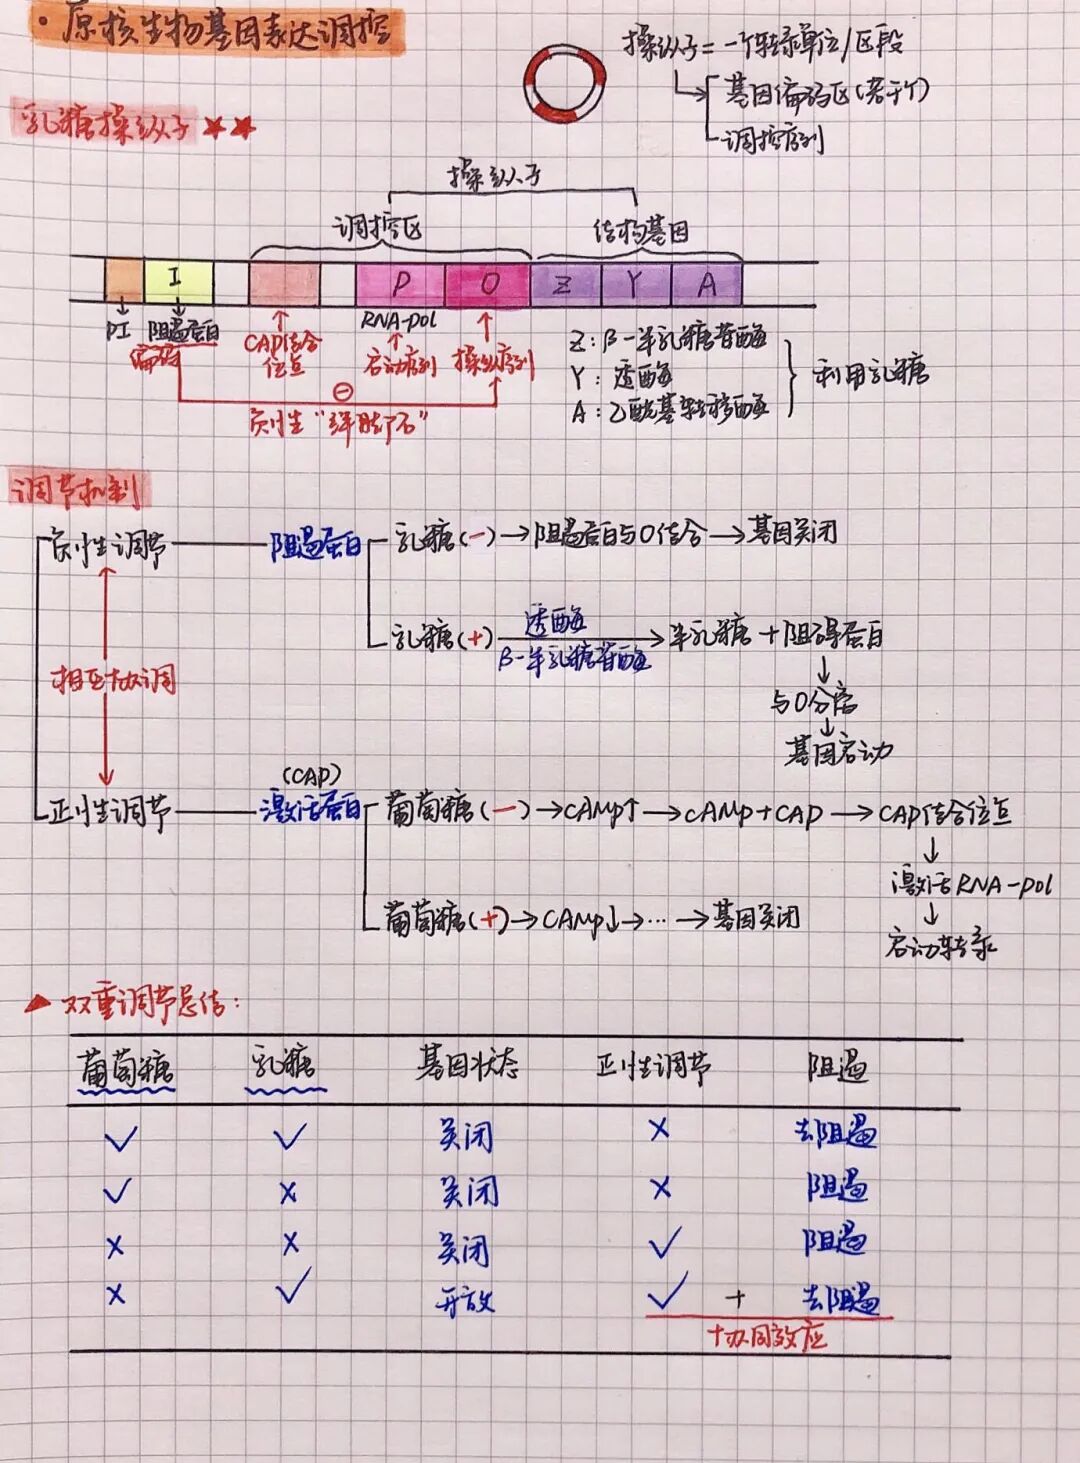 ·原核生物基因表达调控
操纵子=一个转录单位/区段
基因编码区(若干个)
调控序列
乳糖操纵子★★
操纵子
调控区 结构基因
I P O Z Y A
PI 阻遏蛋白 CAP结合位点 RNA-pol 启动序列 操纵序列
编码
⊖
负性“绊脚石”
Z:β-半乳糖苷酶
Y:透酶
A:乙酰基转移酶
利用乳糖
调节机制
负性调节 阻遏蛋白 乳糖(-)→阻遏蛋白与O结合→基因关闭
乳糖(+) 透酶 β-半乳糖苷酶→半乳糖+阻碍蛋白
↓
与O分离
↓
基因启动
相互协调
(CAP)
正性调节 激活蛋白 葡萄糖(-)→CAMP↑→CAMP+CAP→CAP结合位点
↓
激活RNA-pol
↓
启动转录
葡萄糖(+)→CAMP↓→…→基因关闭
▲双重调节总结:
葡萄糖 乳糖 基因状态 正性调节 阻遏
✓ ✓ 关闭 × 去阻遏
✓ × 关闭 × 阻遏
× × 关闭 ✓ 阻遏
× ✓ 开放 ✓ + 去阻遏
协同效应